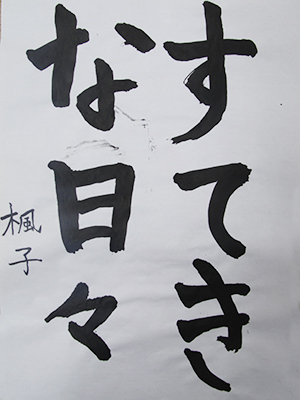 すてき
な日々
楓子